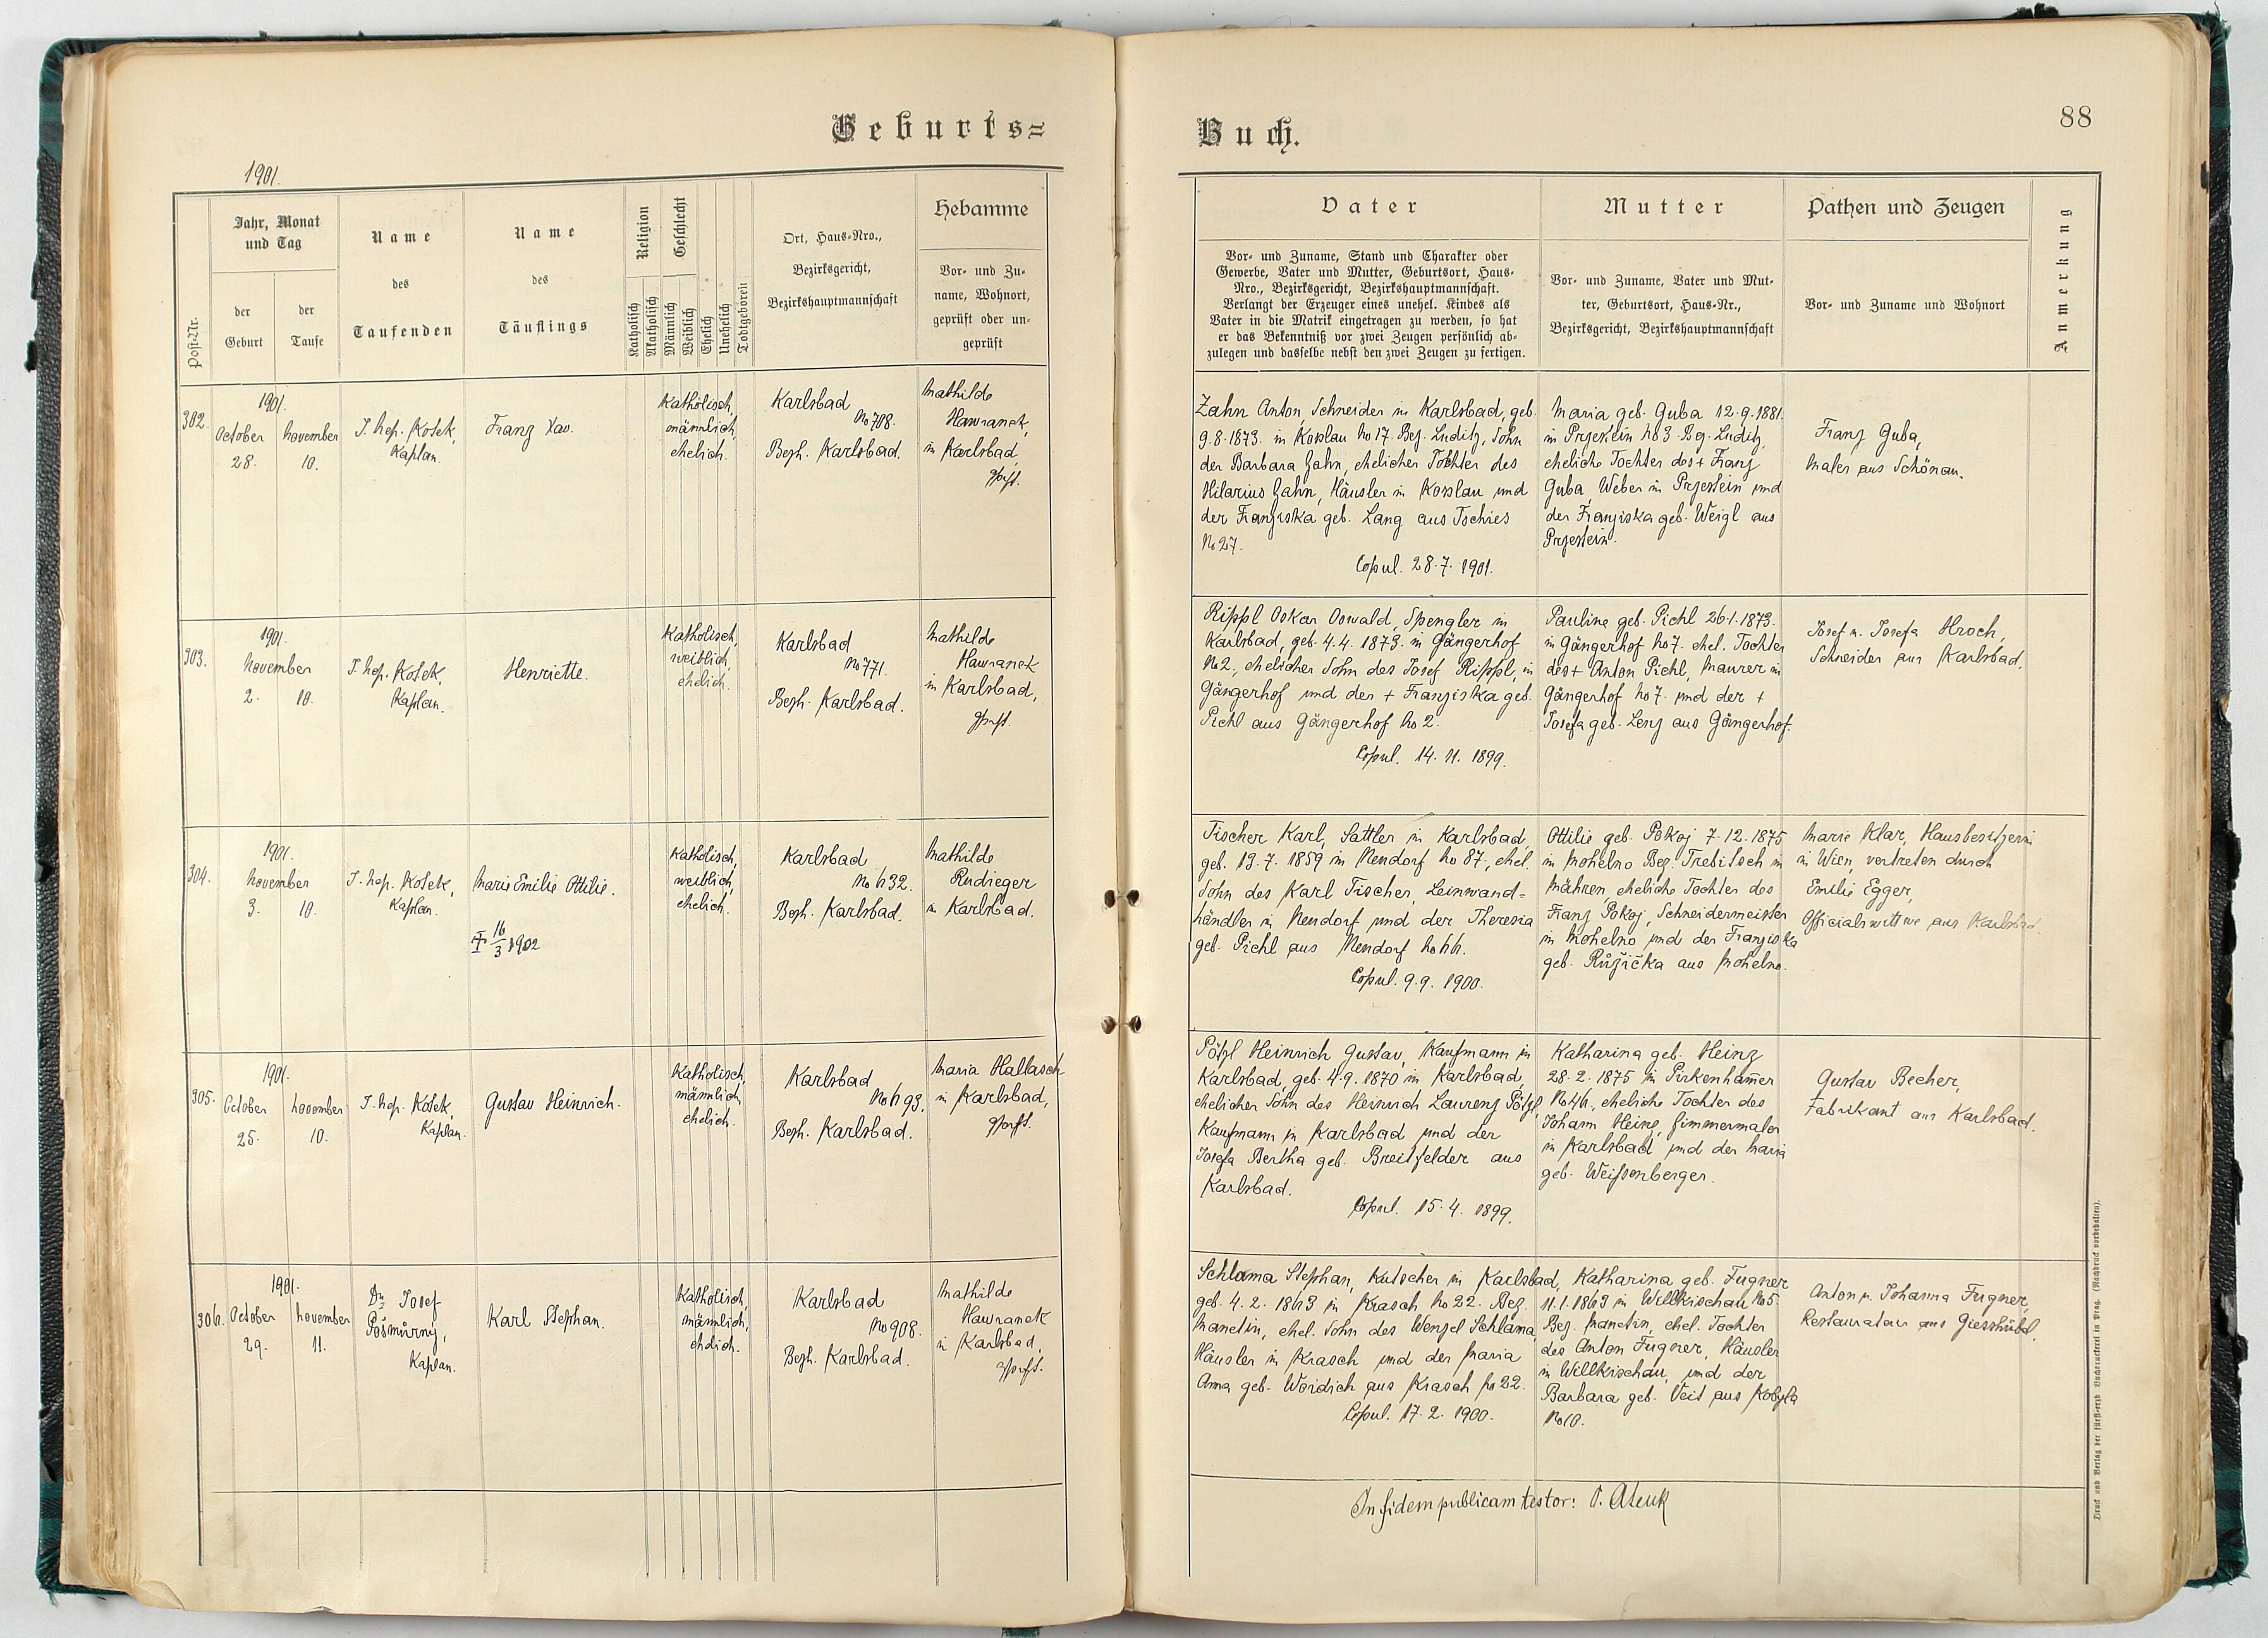 Geburts=
1901.
Post-Nr.
Jahr, Monat
und Tag
der
Geburt
der
Taufe
Name
des
Taufenden
Name
des
Täuflings
Religion
Katholisch
Akatholisch
Geschlecht
Männlich
Weiblich
Ehelich
Unehelich
Todtgeboren
Ort, Haus-Nro.,
Bezirksgericht,
Bezirkshauptmannschaft
Hebamme
Vor- und Zu-
name, Wohnort,
geprüft oder un-
geprüft
302.
1901.
October
28.
November
10.
J. Nep. Kosek,
Kaplan.
Franz Xav.
Katholisch,
männlich,
ehelich.
Karlsbad
No 708.
Bezh. Karlsbad.
Mathilde
Hawranek,
in Karlsbad,
gprft.
303.
1901.
November
2. 10.
J. Nep. Kosek,
Kaplan.
Henriette.
Katholisch,
weiblich,
ehelich.
Karlsbad
No 771.
Bezh. Karlsbad.
Mathilde
Hawranek
in Karlsbad,
gprft.
304.
1901.
November
3. 10.
J. Nep. Kosek,
Kaplan.
Marie Emilie Ottilie.
16
3 1902
Katholisch,
weiblich,
ehelich.
Karlsbad
No 632.
Bezh. Karlsbad.
Mathilde
Rudieger
in Karlsbad.
305.
1901.
October
25.
November
10.
J. Nep. Kosek,
Kaplan.
Gustav Heinrich.
Katholisch,
männlich,
ehelich.
Karlsbad
No 693.
Bezh. Karlsbad.
Maria Hallasch
in Karlsbad,
gprft.
306.
1901.
October
29.
November
11.
Dr. Josef
Pošmůrný,
Kaplan.
Karl Stephan.
Katholisch,
männlich,
ehelich.
Karlsbad
No 908.
Bezh. Karlsbad.
Mathilde
Hawranek
in Karlsbad,
gprft.
Buch.
88
Vater
Vor- und Zuname, Stand und Charakter oder
Gewerbe, Vater und Mutter, Geburtsort, Haus-
Nro., Bezirksgericht, Bezirkshauptmannschaft.
Verlangt der Erzeuger eines unehel. Kindes als
Vater in die Matrik eingetragen zu werden, so hat
er das Bekenntniß vor zwei Zeugen persönlich ab-
zulegen und dasselbe nebst den zwei Zeugen zu fertigen.
Mutter
Vor- und Zuname, Vater und Mut-
ter, Geburtsort, Haus-Nr.,
Bezirksgericht, Bezirkshauptmannschaft
Pathen und Zeugen
Vor- und Zuname und Wohnort
Anmerkung
Zahn Anton, Schneider in Karlsbad, geb.
9.8.1873. in Koslau No 17. Bez. Luditz, Sohn
der Barbara Zahn, ehelicher Tochter des
Hilarius Zahn, Häusler in Koslau und
der Franziska geb. Lang aus Tschies
No 27.
Copul. 28.7.1901.
Maria geb. Guba 12.9.1881.
in Przestein No 3. Bez. Luditz,
eheliche Tochter des + Franz
Guba, Weber in Przestein und
der Franziska geb. Weigl aus
Przestein.
Franz Guba,
Maler aus Schönau.
Rippl Oskar Oswald, Spengler in
Karlsbad, geb. 4.4.1873. in Gängerhof
No 2., ehelicher Sohn des Josef Rippl, in
Gängerhof und der + Franziska geb.
Pichl aus Gängerhof No 2.
Copul. 14.11.1899.
Pauline geb. Pichl 26.1.1873.
in Gängerhof No 7. ehel. Tochter
des + Anton Pichl, Maurer in
Gängerhof No 7. und der +
Josefa geb. Lenz aus Gängerhof.
Josef u. Josefa Hroch,
Schneider aus Karlsbad.
Fischer Karl, Sattler in Karlsbad,
geb. 13.7.1859 in Neudorf No 87., ehel.
Sohn des Karl Fischer, Leinwand=
händler in Neudorf und der Theresia
geb. Pichl aus Neudorf No 66.
Copul. 9.9.1900.
Ottilie geb. Pokoj 7.12.1875
in Mohelno Bez. Trebitsch in
Mähren, eheliche Tochter des
Franz Pokoj, Schneidermeister
in Mohelno und der Franziska
geb. Růžička aus Mohelno.
Marie Klar, Hausbesitzerin
in Wien, vertreten durch
Emilie Egger,
Officialswittwe aus Karlsbad.
Pötzl Heinrich Gustav, Kaufmann in
Karlsbad, geb. 4.9.1870 in Karlsbad,
ehelicher Sohn des Heinrich Laurenz Pötzl,
Kaufmann in Karlsbad und der
Josefa Bertha geb. Breitfelder aus
Karlsbad.
Copul. 15.4.1899.
Katharina geb. Heinz
28.2.1875 in Pirkenham̅er
No 46., eheliche Tochter des
Johann Heinz, Zimmermaler
in Karlsbad und der Maria
geb. Weißenberger.
Gustav Becher,
Fabrikant aus Karlsbad.
Schlama Stephan, Kutscher in Karlsbad,
geb. 4.2.1863 in Krasch No 22. Bez.
Manetin, ehel. Sohn des Wenzel Schlama,
Häusler in Krasch und der Maria
Anna geb. Woidich aus Krasch No 22.
Copul. 17.2.1900.
Katharina geb. Fugner
11.1.1863 in Willkischau No 5.
Bez. Manetin, ehel. Tochter
des Anton Fugner, Häusler
in Willkischau, und der
Barbara geb. Veit aus Kobyla
No 10.
Anton u. Johanna Fugner,
Restaurateur aus Giesshübl.
In fidem publicam testor:
Druck und Verlag der fürst-erzb. Buchdruckerei in Prag. (Nachdruck vorbehalten).